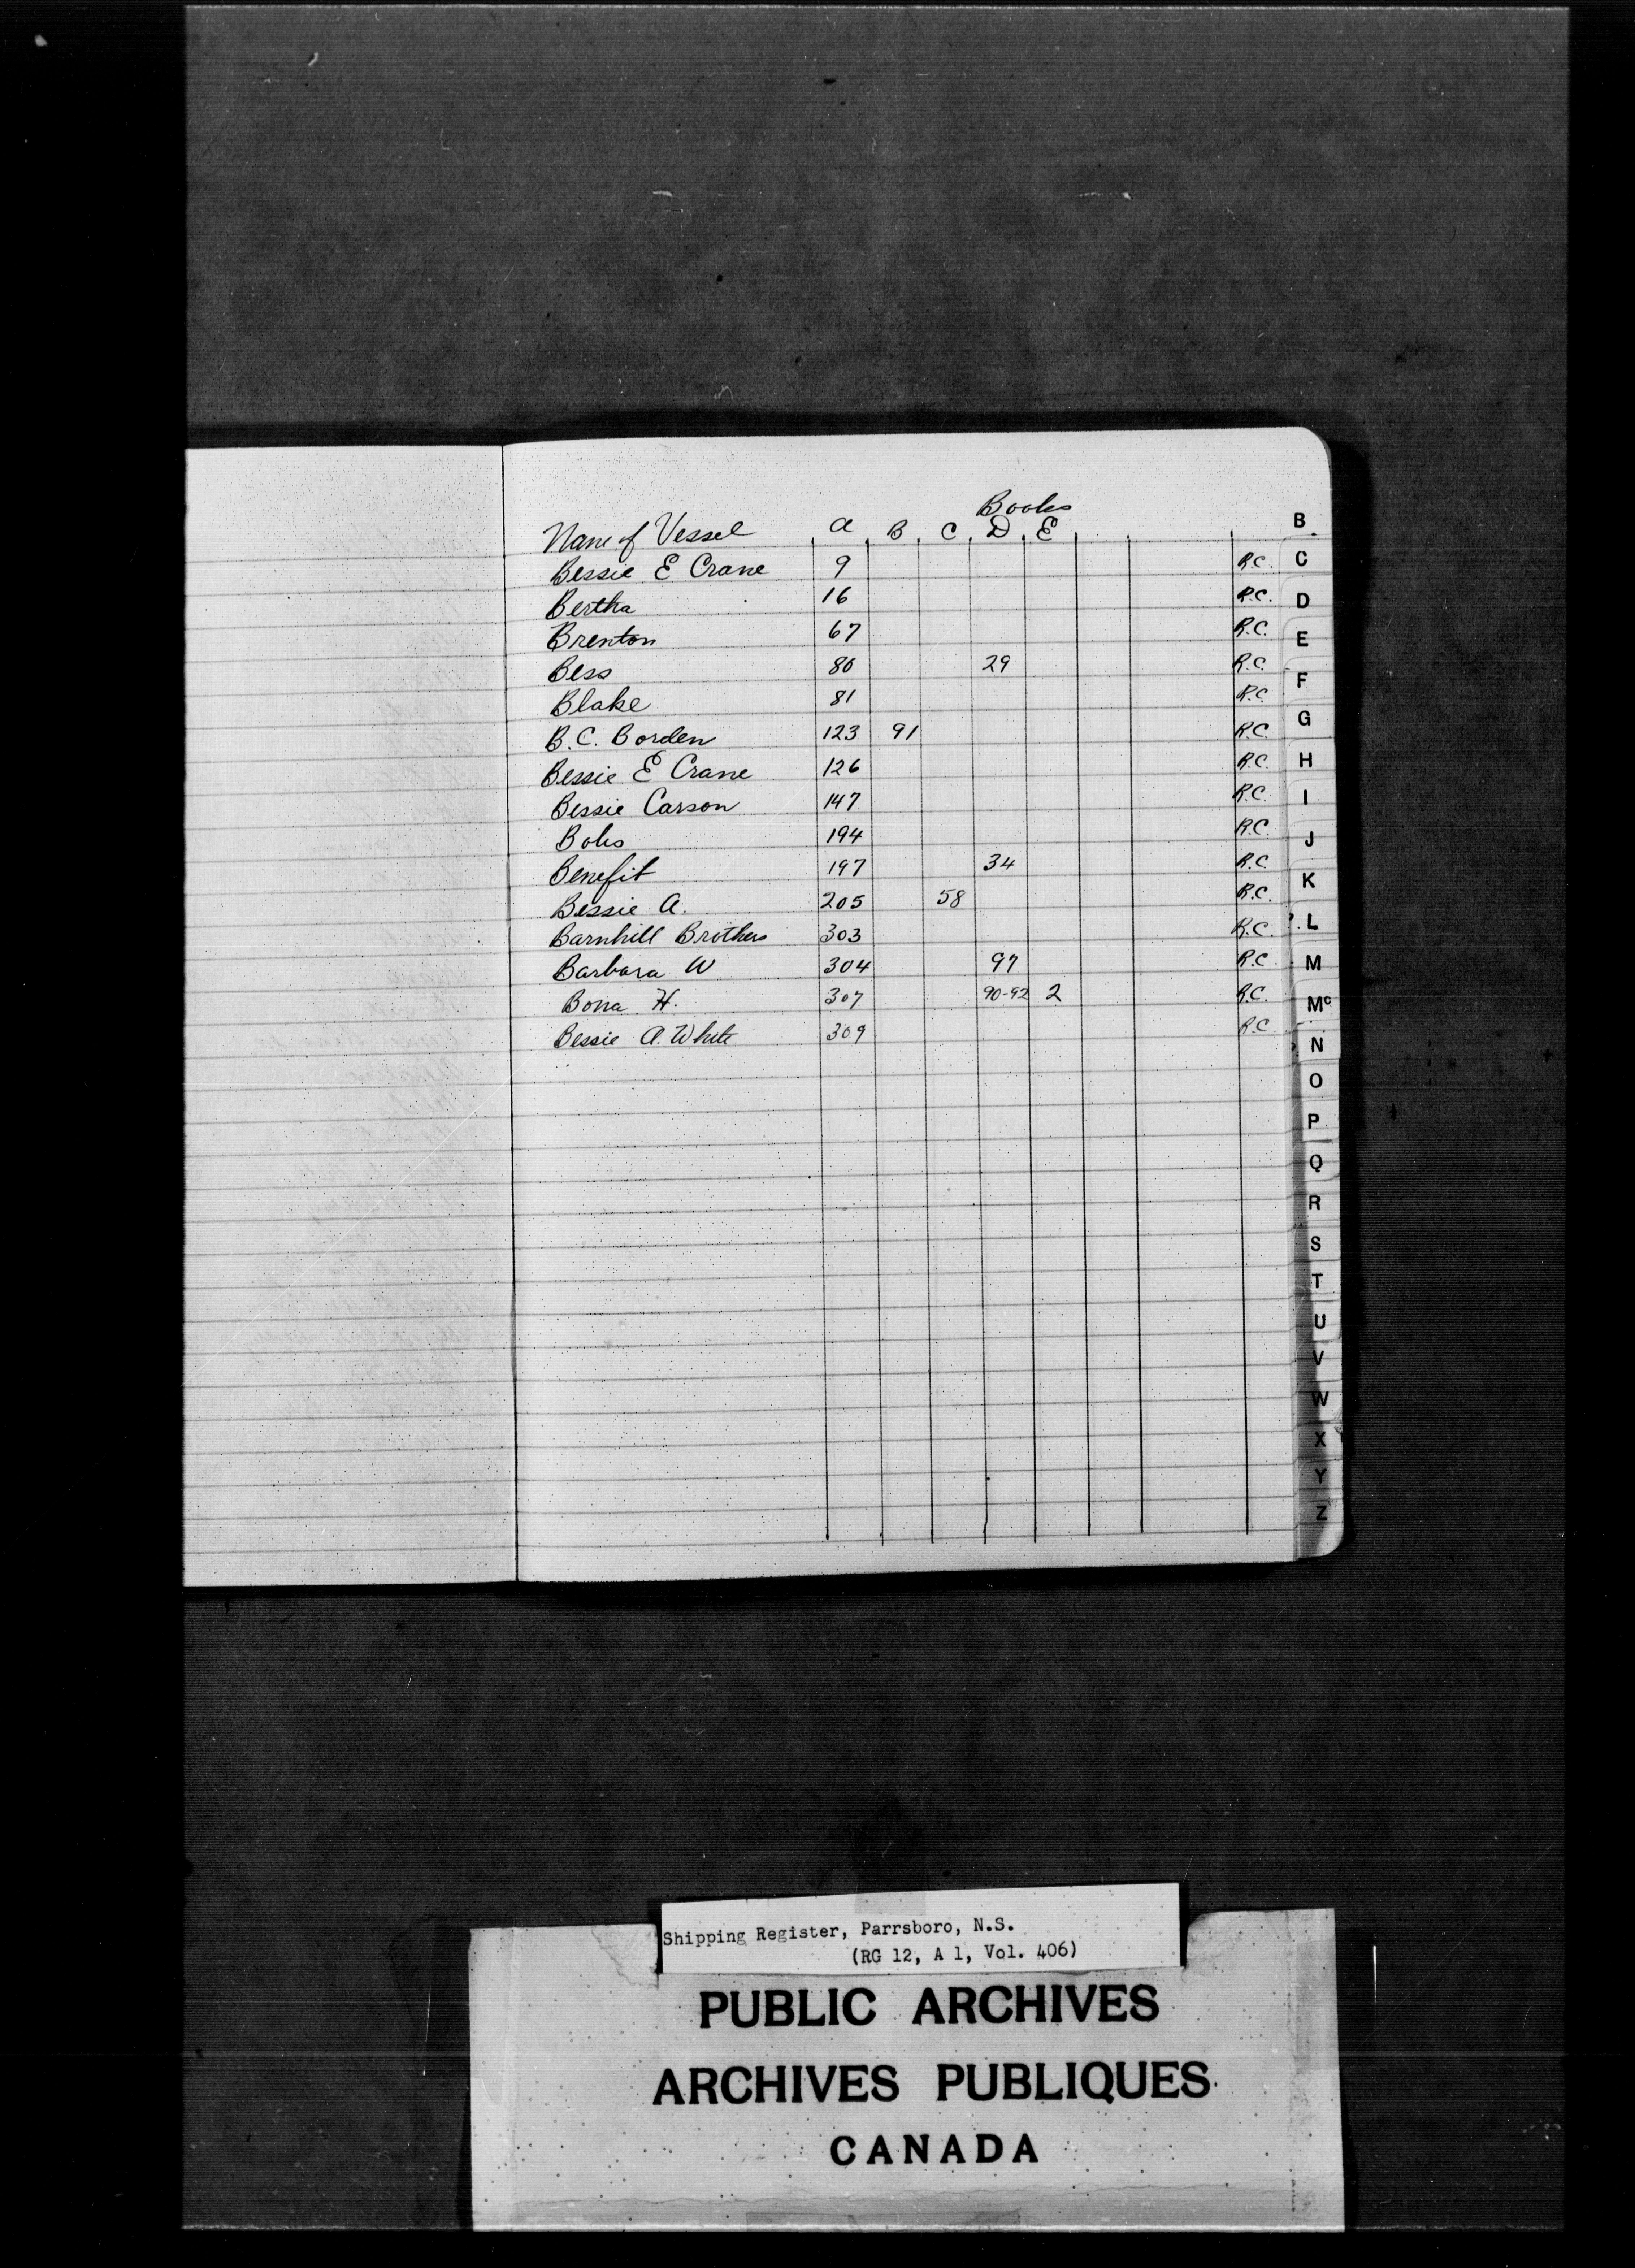 Books
Name of Vessel a B C D E
Bessie E Crane 9 R.C.
Bertha 16 R.C.
Brenton 67 R.C.
Bess 80 29 R.C.
Blake 81 R.C.
B.C. Borden 123 91 R.C.
Bessie E Crane 126 R.C.
Bessie Carson 147 R.C.
Bobs 194 R.C.
Benefit 197 34 R.C.
Bessie A. 205 58 R.C.
Barnhill Brothers 303 R.C.
Barbara W 304 97 R.C.
Bona H. 307 90-92 2 R.C.
Bessie A. White 309 R.C.
B
C
D
E
F
G
H
I
J
K
L
M
Mc
N
O
P
Q
R
S
T
U
V
W
X
Y
Z
Shipping Register, Parrsboro, N.S.
(RG 12, A 1, Vol. 406)
PUBLIC ARCHIVES
ARCHIVES PUBLIQUES
CANADA